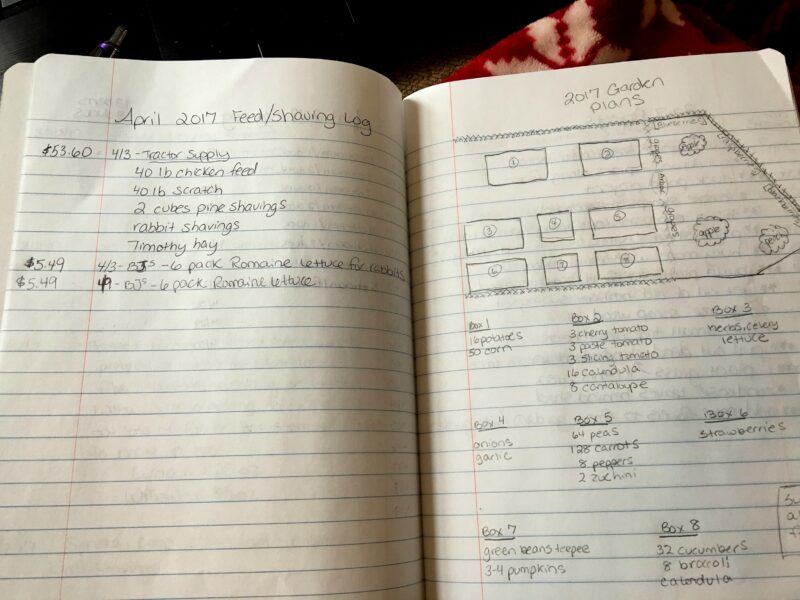 April 2017 Feed/Shaving Log
$53.60 4/3 - Tractor Supply
40 lb chicken feed
40 lb scratch
2 cubes pine shavings
rabbit shavings
Timothy hay
$5.49 4/3 - BJs - 6 pack Romaine lettuce for rabbits
$5.49 4/9 - BJs - 6 pack Romaine lettuce
2017 Garden
Plans
1
2
grapes
Arbor
grapes
3
4
5
apple
peach
6
7
8
Box 1
16 potatoes
50 corn
Box 2
3 cherry tomato
3 paste tomato
3 slicing tomato
16 calendula
8 cantalupe
Box 3
herbs, celery
lettuce
Box 4
onions
garlic
Box 5
64 peas
128 carrots
8 peppers
2 zuchini
Box 6
strawberries
Box 7
green beans teepee
3-4 pumpkins
Box 8
32 cucumbers
8 broccoli
calendula